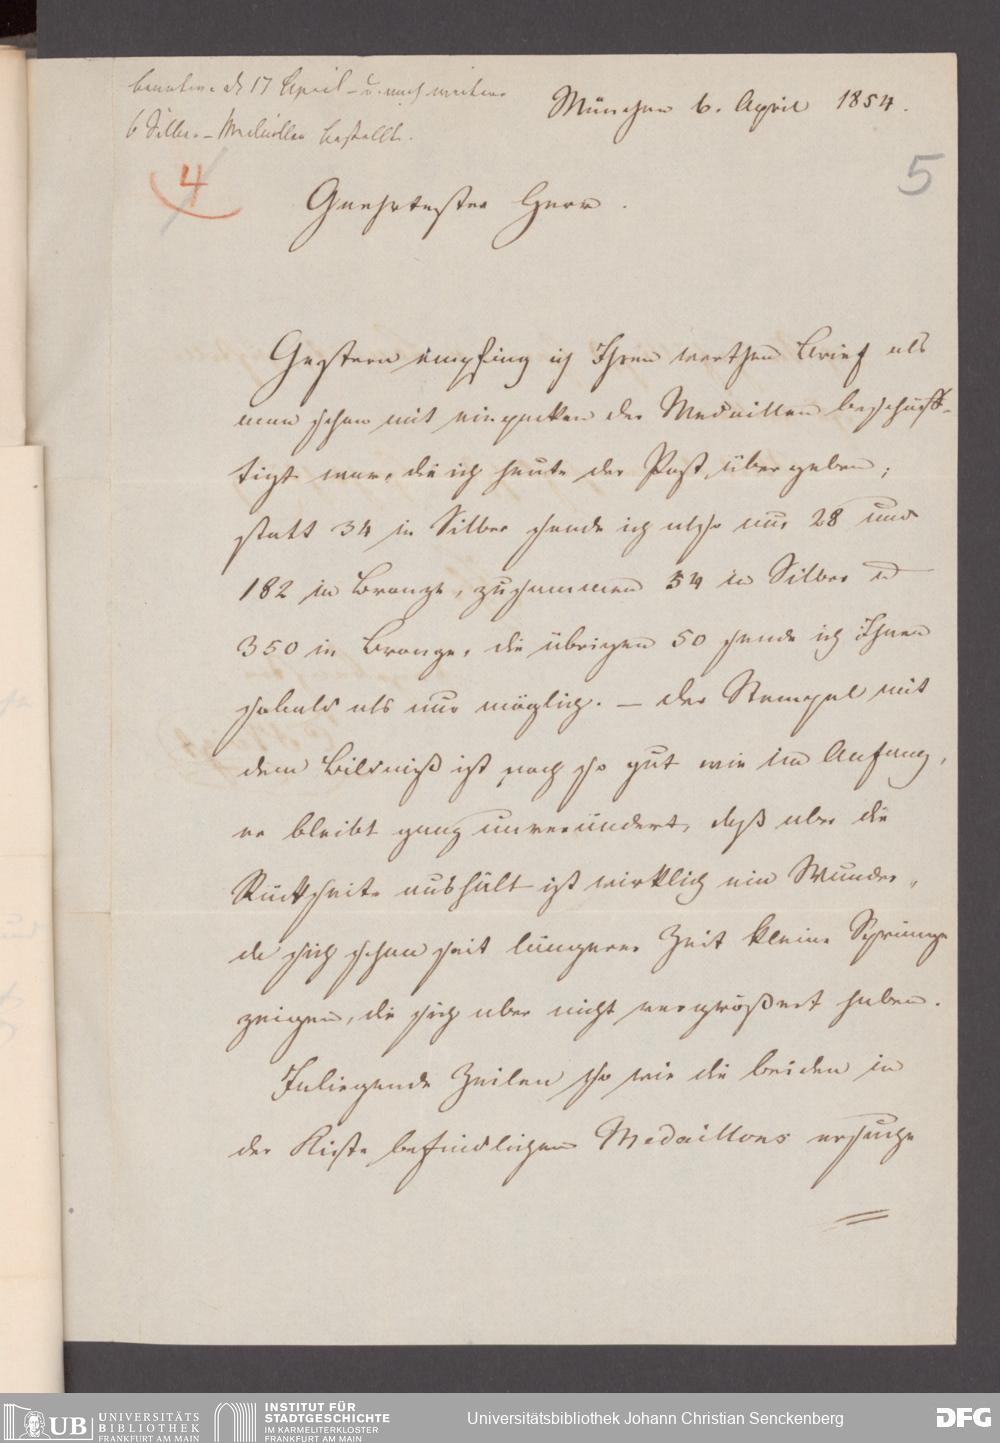 beantw. d 17 April – u. noch weitere
6 Silber-Medaillen bestellt.
München 6. April 1854.
4
5
Geehrtester Herr.
Gestern empfing ich Ihren werthen Brief als
man schon mit einpacken der Medaillen beschäf-
tigt war, die ich heute der Post übergeben;
statt 34 in Silber sende ich also nur 28 und
182 in Bronze, zusammen 54 in Silber u
350 in Bronze, die übrigen 50 sende ich Ihnen
sobald als nur möglich. – der Stempel mit
dem Bildniß ist noch so gut wie im Anfang,
er bleibt ganz unverändert, daß aber die
Rückseite aushält ist wirklich ein Wunder,
da sich schon seit längerer Zeit kleine Sprünge
zeigen, die sich aber nicht vergrößert haben.
Inliegende Zeilen so wie die beiden in
der Kiste befindlichen Medaillons ersuche
UB UNIVERSITÄTS
BIBLIOTHEK
FRANKFURT AM MAIN
INSTITUT FÜR
STADTGESCHICHTE
IM KARMELITERKLOSTER
FRANKFURT AM MAIN
Universitätsbibliothek Johann Christian Senckenberg
DFG